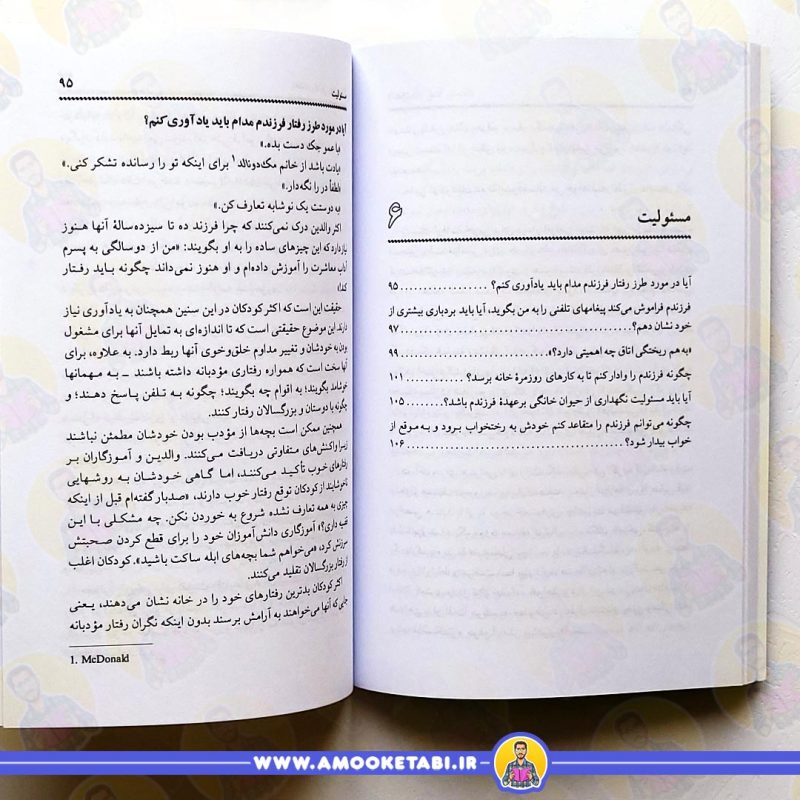 مسئولیت
۶
آیا در مورد طرز رفتار فرزندم مدام باید یادآوری کنم؟ .................. ۹۵
فرزندم فراموش می‌کند پیغامهای تلفنی را به من بگوید، آیا باید بردباری بیشتری از
خود نشان دهم؟ .................. ۹۷
«به هم ریختگی اتاق چه اهمیتی دارد؟» .................. ۹۹
چگونه فرزندم را وادار کنم تا به کارهای روزمرهٔ خانه برسد؟ .................. ۱۰۱
آیا باید مسئولیت نگهداری از حیوان خانگی برعهدهٔ فرزندم باشد؟ .................. ۱۰۵
چگونه می‌توانم فرزندم را متقاعد کنم خودش به رختخواب برود و به موقع از
خواب بیدار شود؟ .................. ۱۰۶
مسئولیت ۹۵
آیا در مورد طرز رفتار فرزندم مدام باید یادآوری کنم؟
با عمو جک دست بده.»
یادت باشد از خانم مک‌دونالد۱ برای اینکه تو را رسانده تشکر کنی.»
لطفاً در را نگه‌دار.»
به دوستت یک نوشابه تعارف کن.»
اکثر والدین درک نمی‌کنند که چرا فرزند ده تا سیزده‌سالهٔ آنها هنوز
نیاز دارد که این چیزهای ساده را به او بگویند: «من از دوسالگی به پسرم
آداب معاشرت را آموزش داده‌ام و او هنوز نمی‌داند چگونه باید رفتار
کند!»
حقیقت این است که اکثر کودکان در این سنین همچنان به یادآوری نیاز
دارند. این موضوع حقیقتی است که تا اندازه‌ای به تمایل آنها برای مشغول
بودن به خودشان و تغییر مداوم خلق‌وخوی آنها ربط دارد. به علاوه، برای
آنها سخت است که همواره رفتاری مؤدبانه داشته باشند — به مهمانها
خوشامد بگویند؛ به اقوام چه بگویند؛ چگونه به تلفن پاسخ دهند؛ و
چگونه با دوستان و بزرگسالان رفتار کنند.
همچنین ممکن است بچه‌ها از مؤدب بودن خودشان مطمئن نباشند
زیرا واکنش‌های متفاوتی دریافت می‌کنند. والدین و آموزگاران بر
رفتارهای خوب تأکید می‌کنند، اما گاهی خودشان به روشهایی
ناخوشایند از کودکان توقع رفتار خوب دارند، «صدبار گفته‌ام قبل از اینکه
چیزی به همه تعارف نشده شروع به خوردن نکن. چه مشکلی با این
قضیه داری؟» آموزگاری دانش‌آموزان خود را برای قطع کردن صحبتش
سرزنش کرد، «می‌خواهم شما بچه‌های ابله ساکت باشید». کودکان اغلب
از رفتار بزرگسالان تقلید می‌کنند.
اکثر کودکان بدترین رفتارهای خود را در خانه نشان می‌دهند، یعنی
جایی که آنها می‌خواهند به آرامش برسند بدون اینکه نگران رفتار مؤدبانه
1. McDonald
WWW.AMOOKETABI.IR